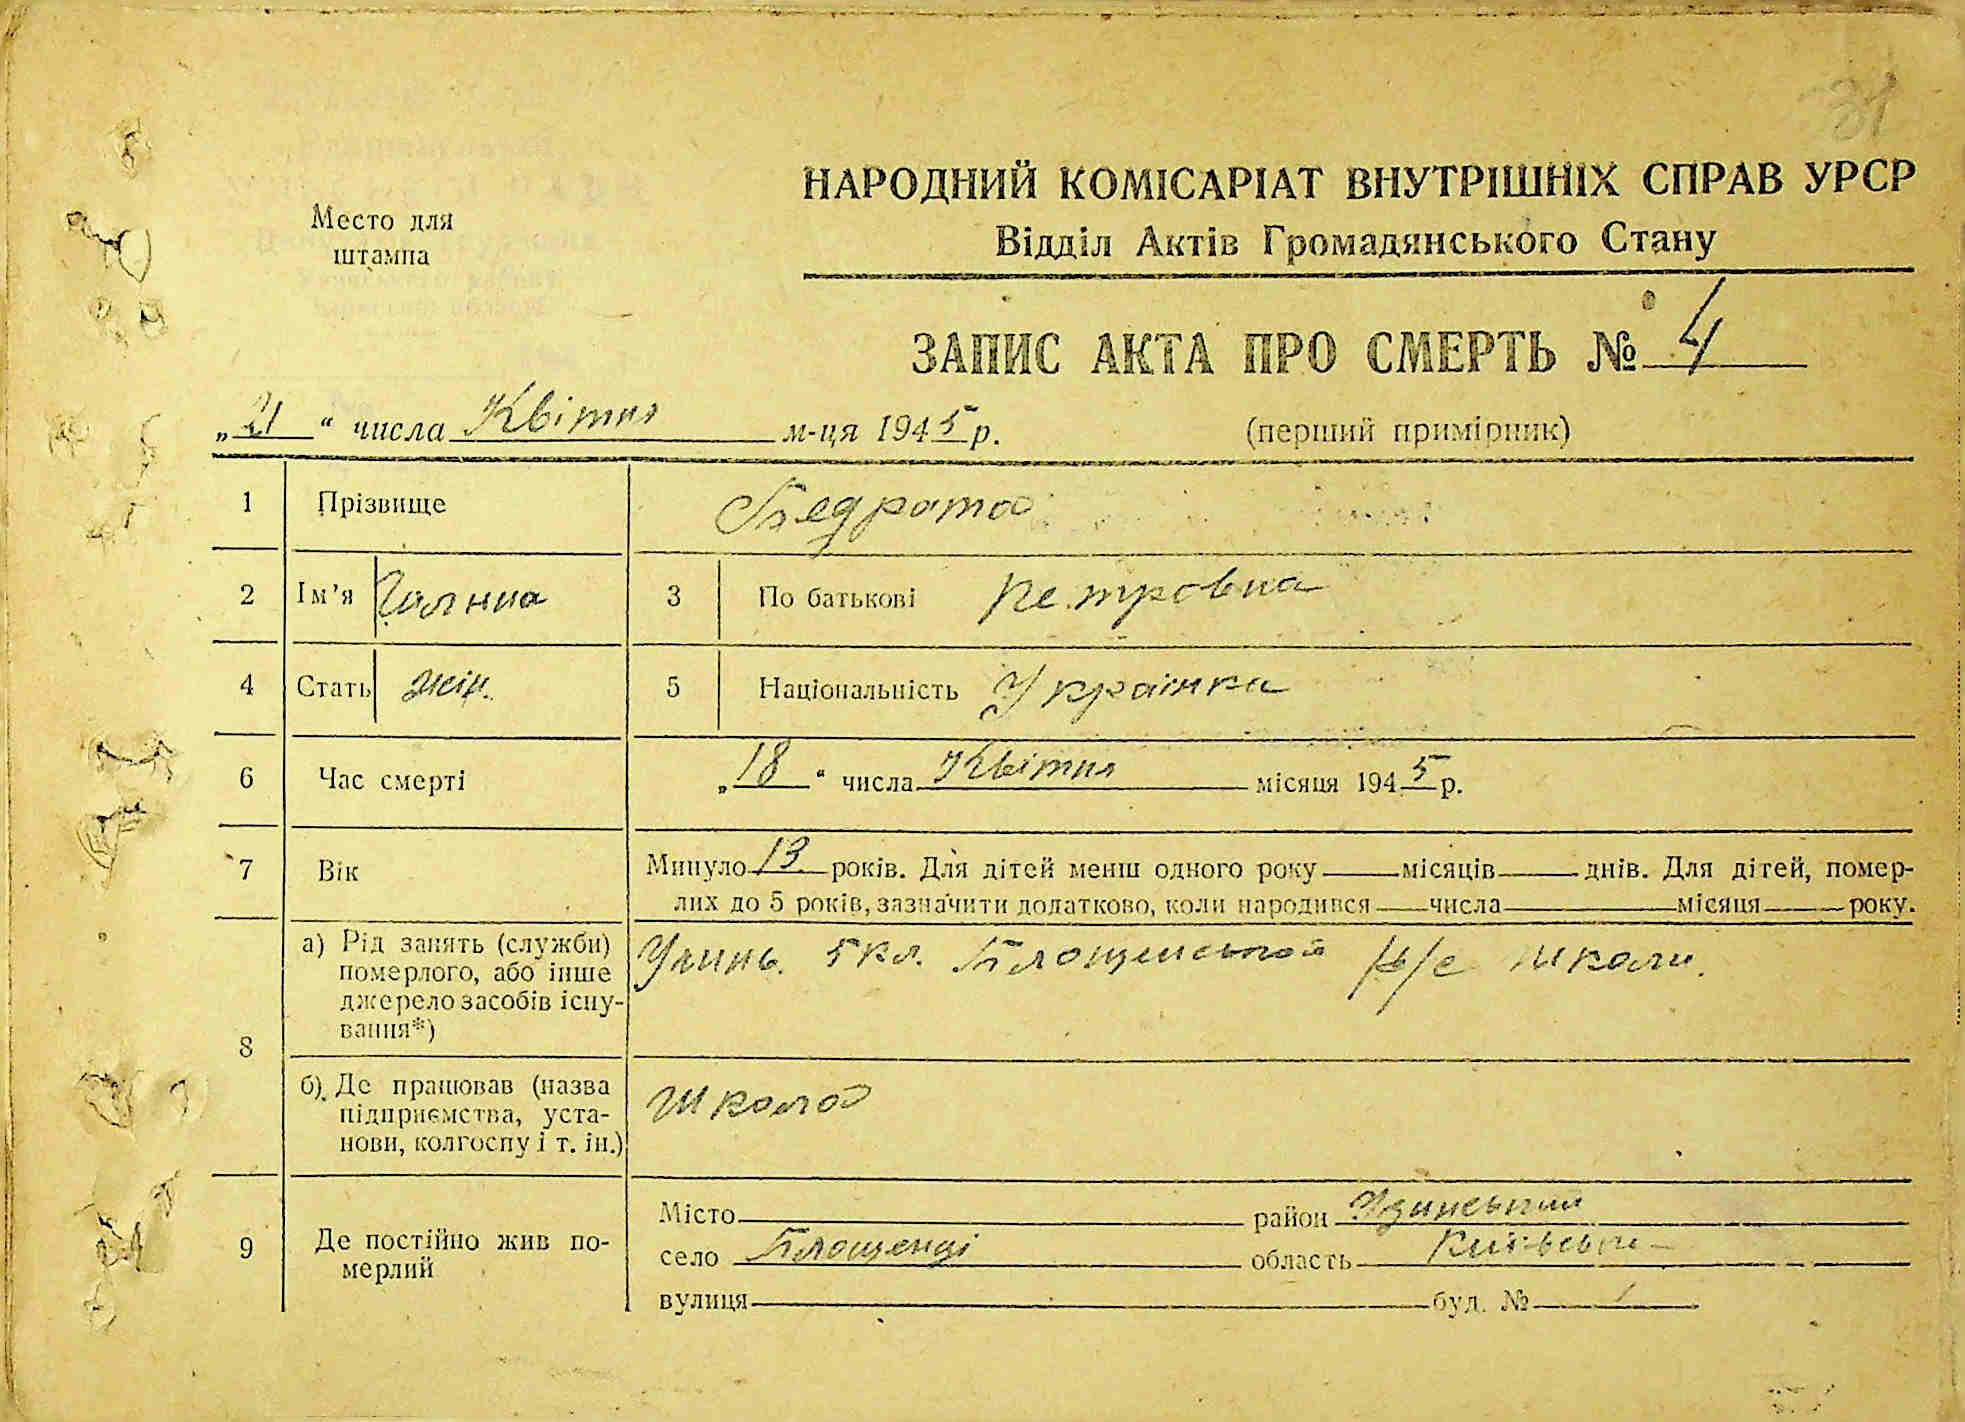 31
НАРОДНИЙ КОМІСАРІАТ ВНУТРІШНІХ СПРАВ УРСР
Место для
штампа
Відділ Актів Громадянського Стану
ЗАПИС АКТА ПРО СМЕРТЬ № 4
„21“ числа Квітня м-ця 1945 р. (перший примірник)
1 Прізвище Бедрата
2 Ім'я Галина 3 По батькові Петровна
4 Стать жін. 5 Національність Українка
6 Час смерті „18“ числа Квітня місяця 1945 р.
7 Вік Минуло 13 років. Для дітей менш одного року місяців днів. Для дітей, помер-
лих до 5 років, зазначити додатково, коли народився числа місяця року.
8 а) Рід занять (служби)
померлого, або інше
джерело засобів існу-
вання*)
Учинь. 5 кл. н/с школи.
б) Де працював (назва
підприємства, уста-
нови, колгоспу і т. ін.)
школа
9 Де постійно жив по-
мерлий
Місто район
село область Київська
вулиця буд. №